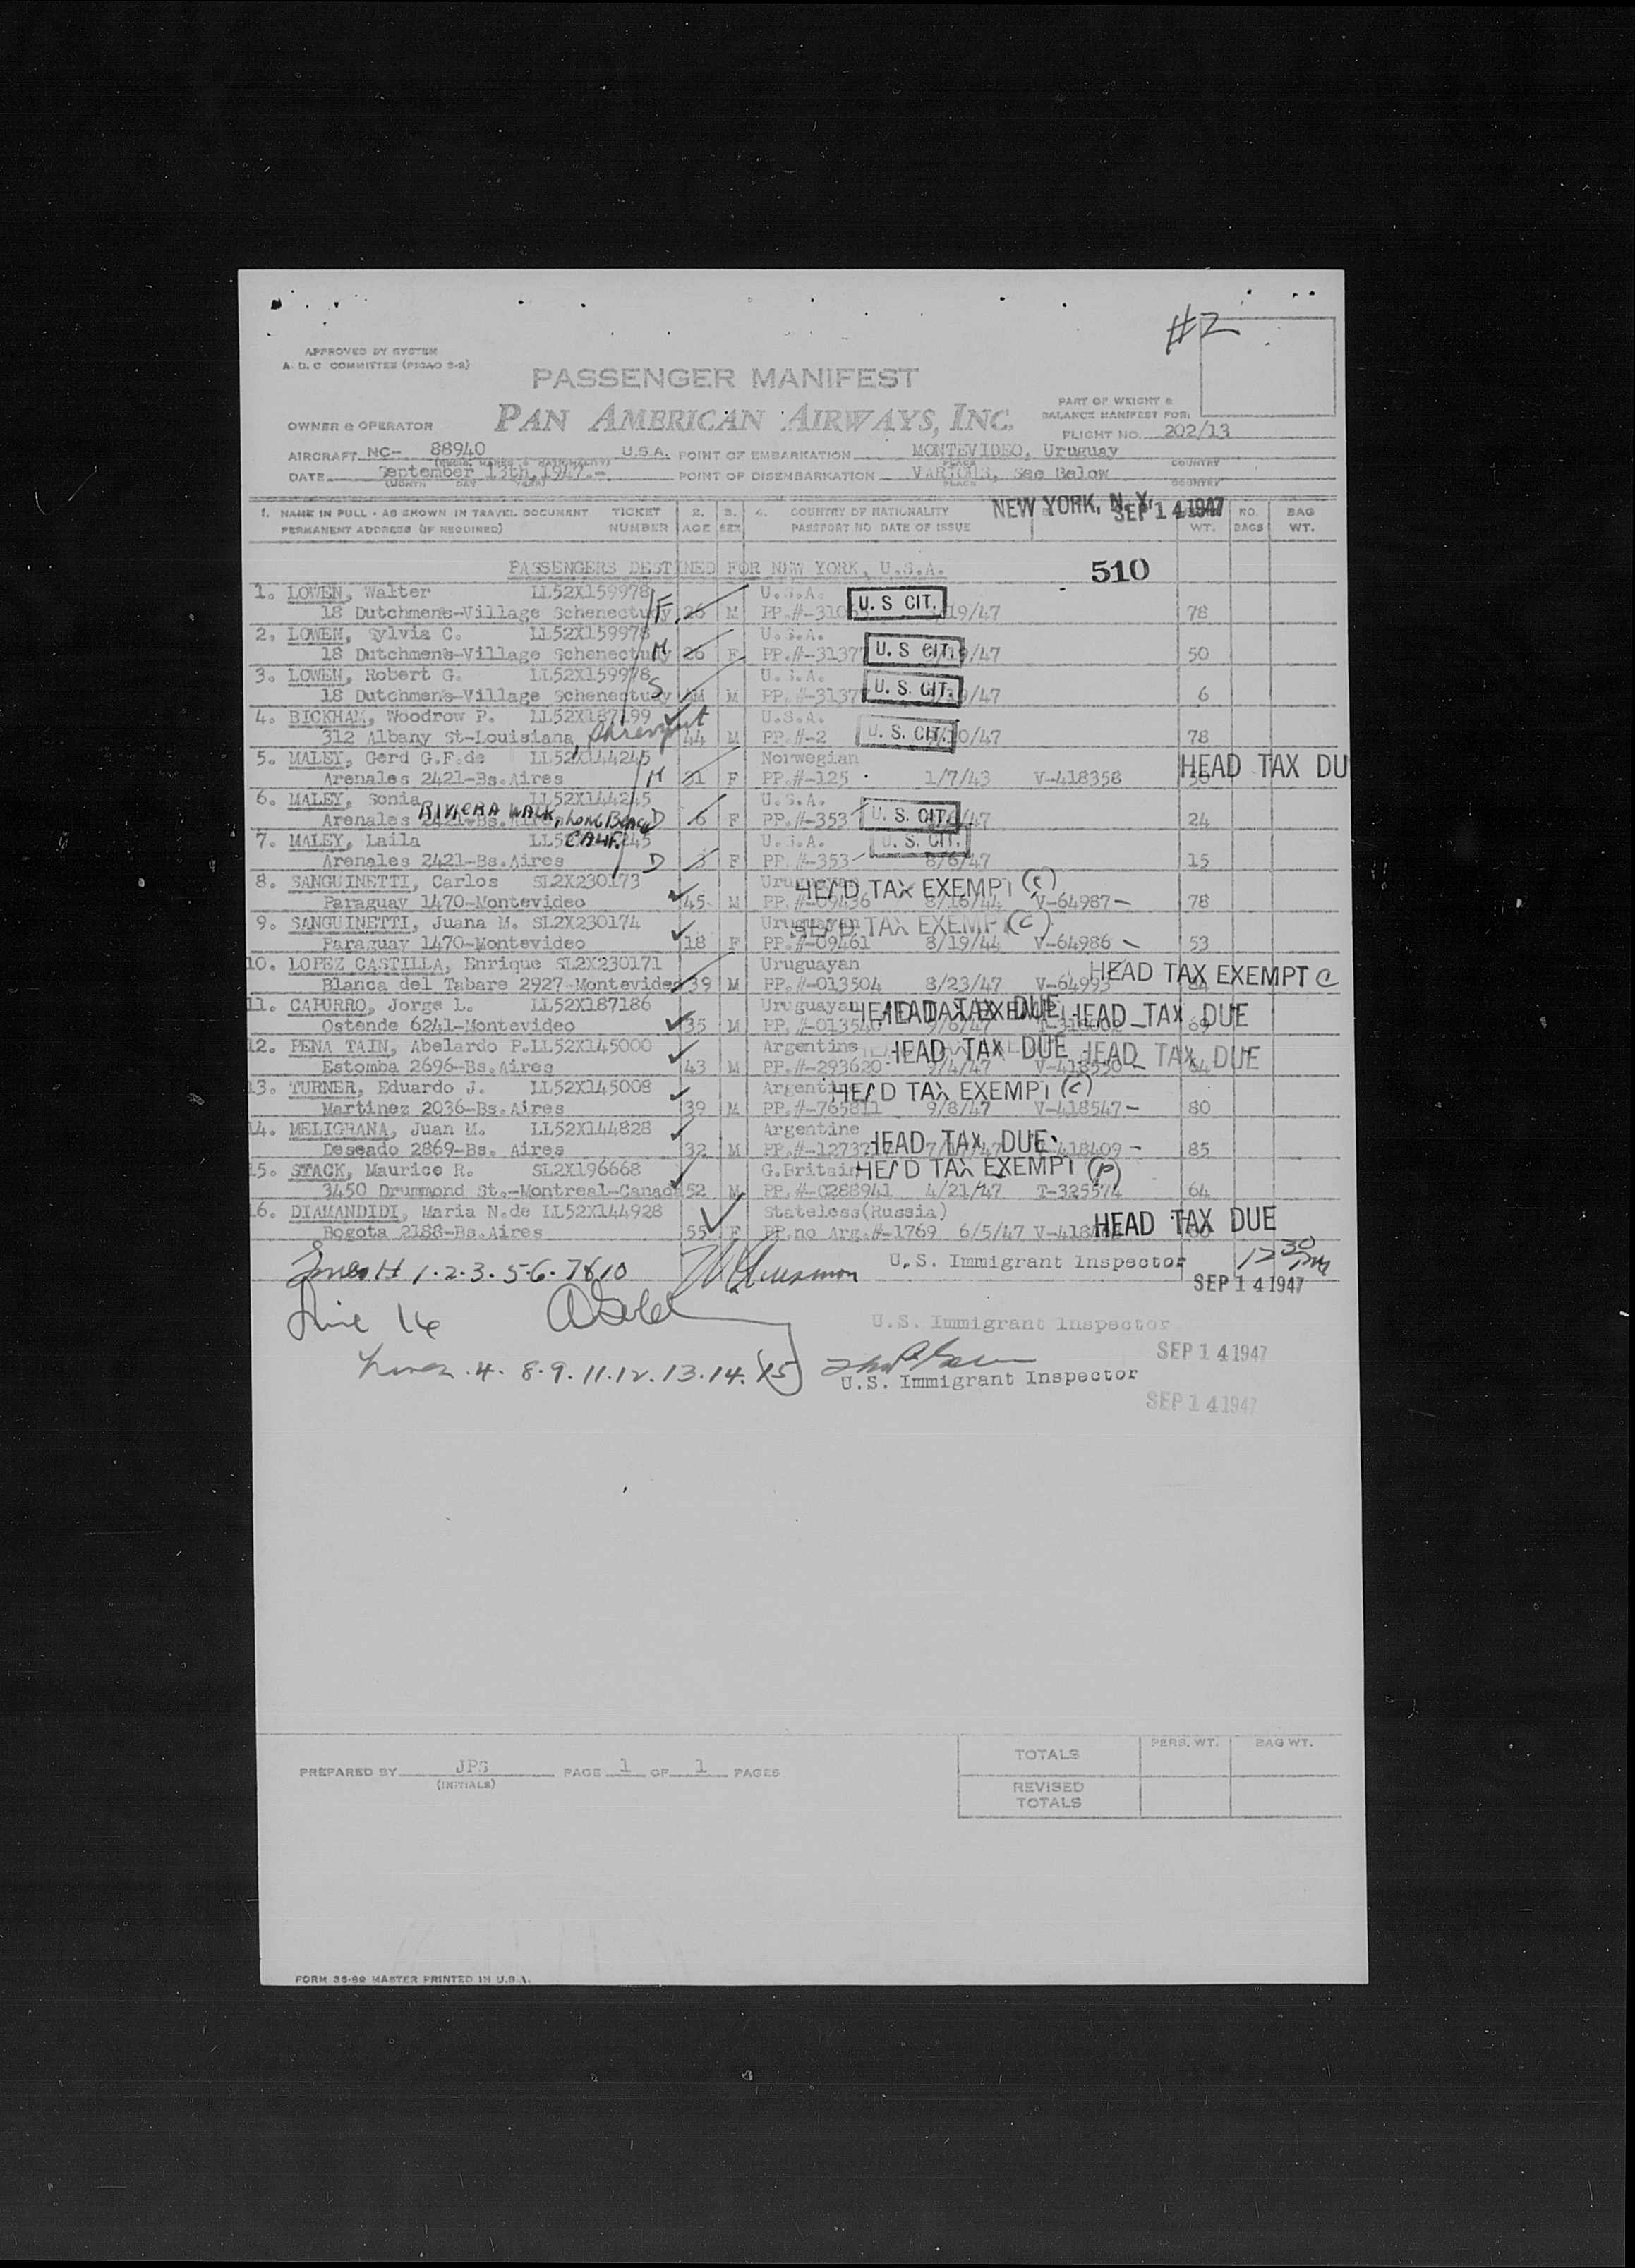 #2
APPROVED BY SYSTEM
A. D. C COMMITTEE (PICAO 3-2)
PASSENGER MANIFEST
PART OF WEIGHT &
BALANCE MANIFEST FOR:
OWNER & OPERATOR PAN AMERICAN AIRWAYS, INC.
FLIGHT NO. 202/13
AIRCRAFT NC- 88940 U.S.A. POINT OF EMBARKATION MONTEVIDEO, Uruguay
PLACE COUNTRY
DATE September 13th, 1947.- POINT OF DISEMBARKATION VARIOUS, See Below
(MONTH DAY YEAR) PLACE COUNTRY
NEW YORK, N. Y. SEP 14 1947
1. NAME IN FULL - AS SHOWN IN TRAVEL DOCUMENT TICKET 2. 3. 4. COUNTRY OF NATIONALITY NO. BAG
PERMANENT ADDRESS (IF REQUIRED) NUMBER AGE SEX PASSPORT NO DATE OF ISSUE WT. BAGS WT.
PASSENGERS DESTINED FOR NEW YORK, U.S.A. 510
1. LOWEN, Walter LL52X159978 U.S.A. U. S CIT.
18 Dutchmens-Village Schenectudy F 26 M 19/47 78
2. LOWEN, Sylvia C. LL52X159978 U.S.A. U. S CIT.
18 Dutchmens-Village Schenectudy M 26 F PP.#-3137 /47 50
3. LOWEN, Robert G. LL52X159978 U.S.A. U. S. CIT.
18 Dutchmens-Village Schenectudy S M PP.#-3137 /47 6
4. BICKHAM, Woodrow P. LL52X187199 U.S.A. U. S. CIT.
312 Albany St-Louisiana, Shreveport 44 M PP.#-2 /47 78
5. MALEY, Gerd G.F.de LL52X144245 Norwegian HEAD TAX DU
Arenales 2421-Bs.Aires M 31 F PP.#-125 1/7/43 V-418358
6. MALEY, Sonia LL52X144245 U.S.A. U. S. CIT.
Arenales 2421-Bs. RIVIERA WALK, LONG BEACH D 6 F PP.#-353 /47 24
CALIF.
7. MALEY, Laila U.S.A. U. S. CIT.
Arenales 2421-Bs.Aires D 3 F PP.#-353 8/6/47 15
8. SANGUINETTI, Carlos SL2X230173 HEAD TAX EXEMPT (C)
Paraguay 1470-Montevideo 45 M PP.#-09436 8/16/44 V-64987- 78
9. SANGUINETTI, Juana M. SL2X230174 Uruguayan HEAD TAX EXEMPT (C)
Paraguay 1470-Montevideo 18 F PP.#-09461 8/19/44 V-64986 - 53
10. LOPEZ CASTILLA, Enrique SL2X230171 Uruguayan HEAD TAX EXEMPT C
Blanca del Tabare 2927-Montevideo 39 M PP.#-013504 8/23/47 V-64993
11. CAPURRO, Jorge L. LL52X187186 Uruguayan HEAD TAX DUE HEAD TAX DUE
Ostende 6241-Montevideo 35 M
12. PENA TAIN, Abelardo P. LL52X145000 Argentine HEAD TAX DUE HEAD TAX DUE
Estomba 2696-Bs.Aires 43 M PP.#-293620 9/4/47 V-418550-
13. TURNER, Eduardo J. LL52X145008 Argentine HEAD TAX EXEMPT (C)
Martinez 2036-Bs.Aires 39 M PP.#-765811 9/8/47 V-418547- 80
14. MELIGRANA, Juan M. LL52X144828 Argentine HEAD TAX DUE
Deseado 2869-Bs. Aires 32 M 418409 - 85
15. STACK, Maurice R. SL2X196668 G.Britain HEAD TAX EXEMPT (P)
3450 Drummond St.-Montreal-Canada 52 M PP.#-C288941 4/21/47 T-325574 64
16. DIAMANDIDI, Maria N.de LL52X144928 Stateless(Russia) HEAD TAX DUE
Bogota 2188-Bs.Aires 55 F PP.no Arg.#-1769 6/5/47
Lines 1.2.3.5-6.7&10 U.S. Immigrant Inspector 12 30 PM
SEP 14 1947
Line 16 U.S. Immigrant Inspector
SEP 14 1947
Lines.4.8.9.11.12.13.14.15 U.S. Immigrant Inspector
SEP 14 1947
TOTALS PERS. WT. BAG WT.
PREPARED BY JPS PAGE 1 OF 1 PAGES
(INITIALS)
REVISED
TOTALS
FORM 35-60 MASTER PRINTED IN U.S.A.